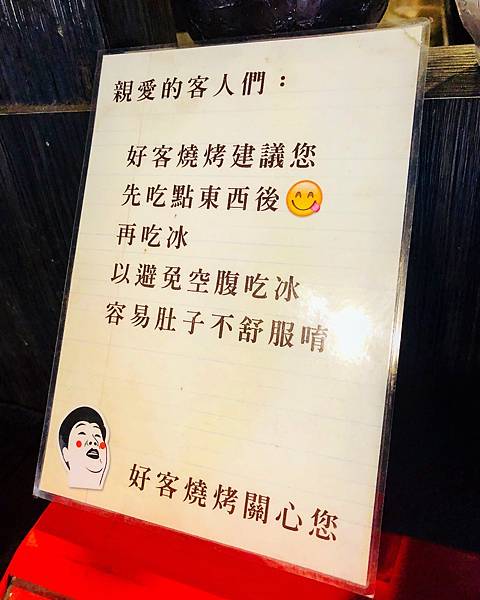 親愛的客人們：
好客燒烤建議您
先吃點東西後😋
再吃冰
以避免空腹吃冰
容易肚子不舒服唷
好客燒烤關心您